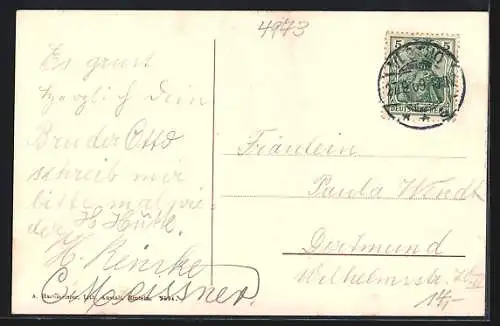 4973
Es grüst
herzlich Dein
Bruder Otto
schreib mir
bitte mal wie
der
H. Hütte.
H. Reincke
C. Meussner.
5 5
DEUTSCHES REICH
Fräulein
Paula Wendt
Dortmund
Wilhelmstr.
14,-